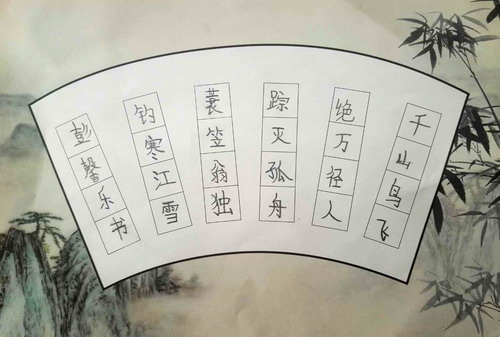 千山鸟飞
绝万径人
踪灭孤舟
蓑笠翁独
钓寒江雪
彭馨乐书